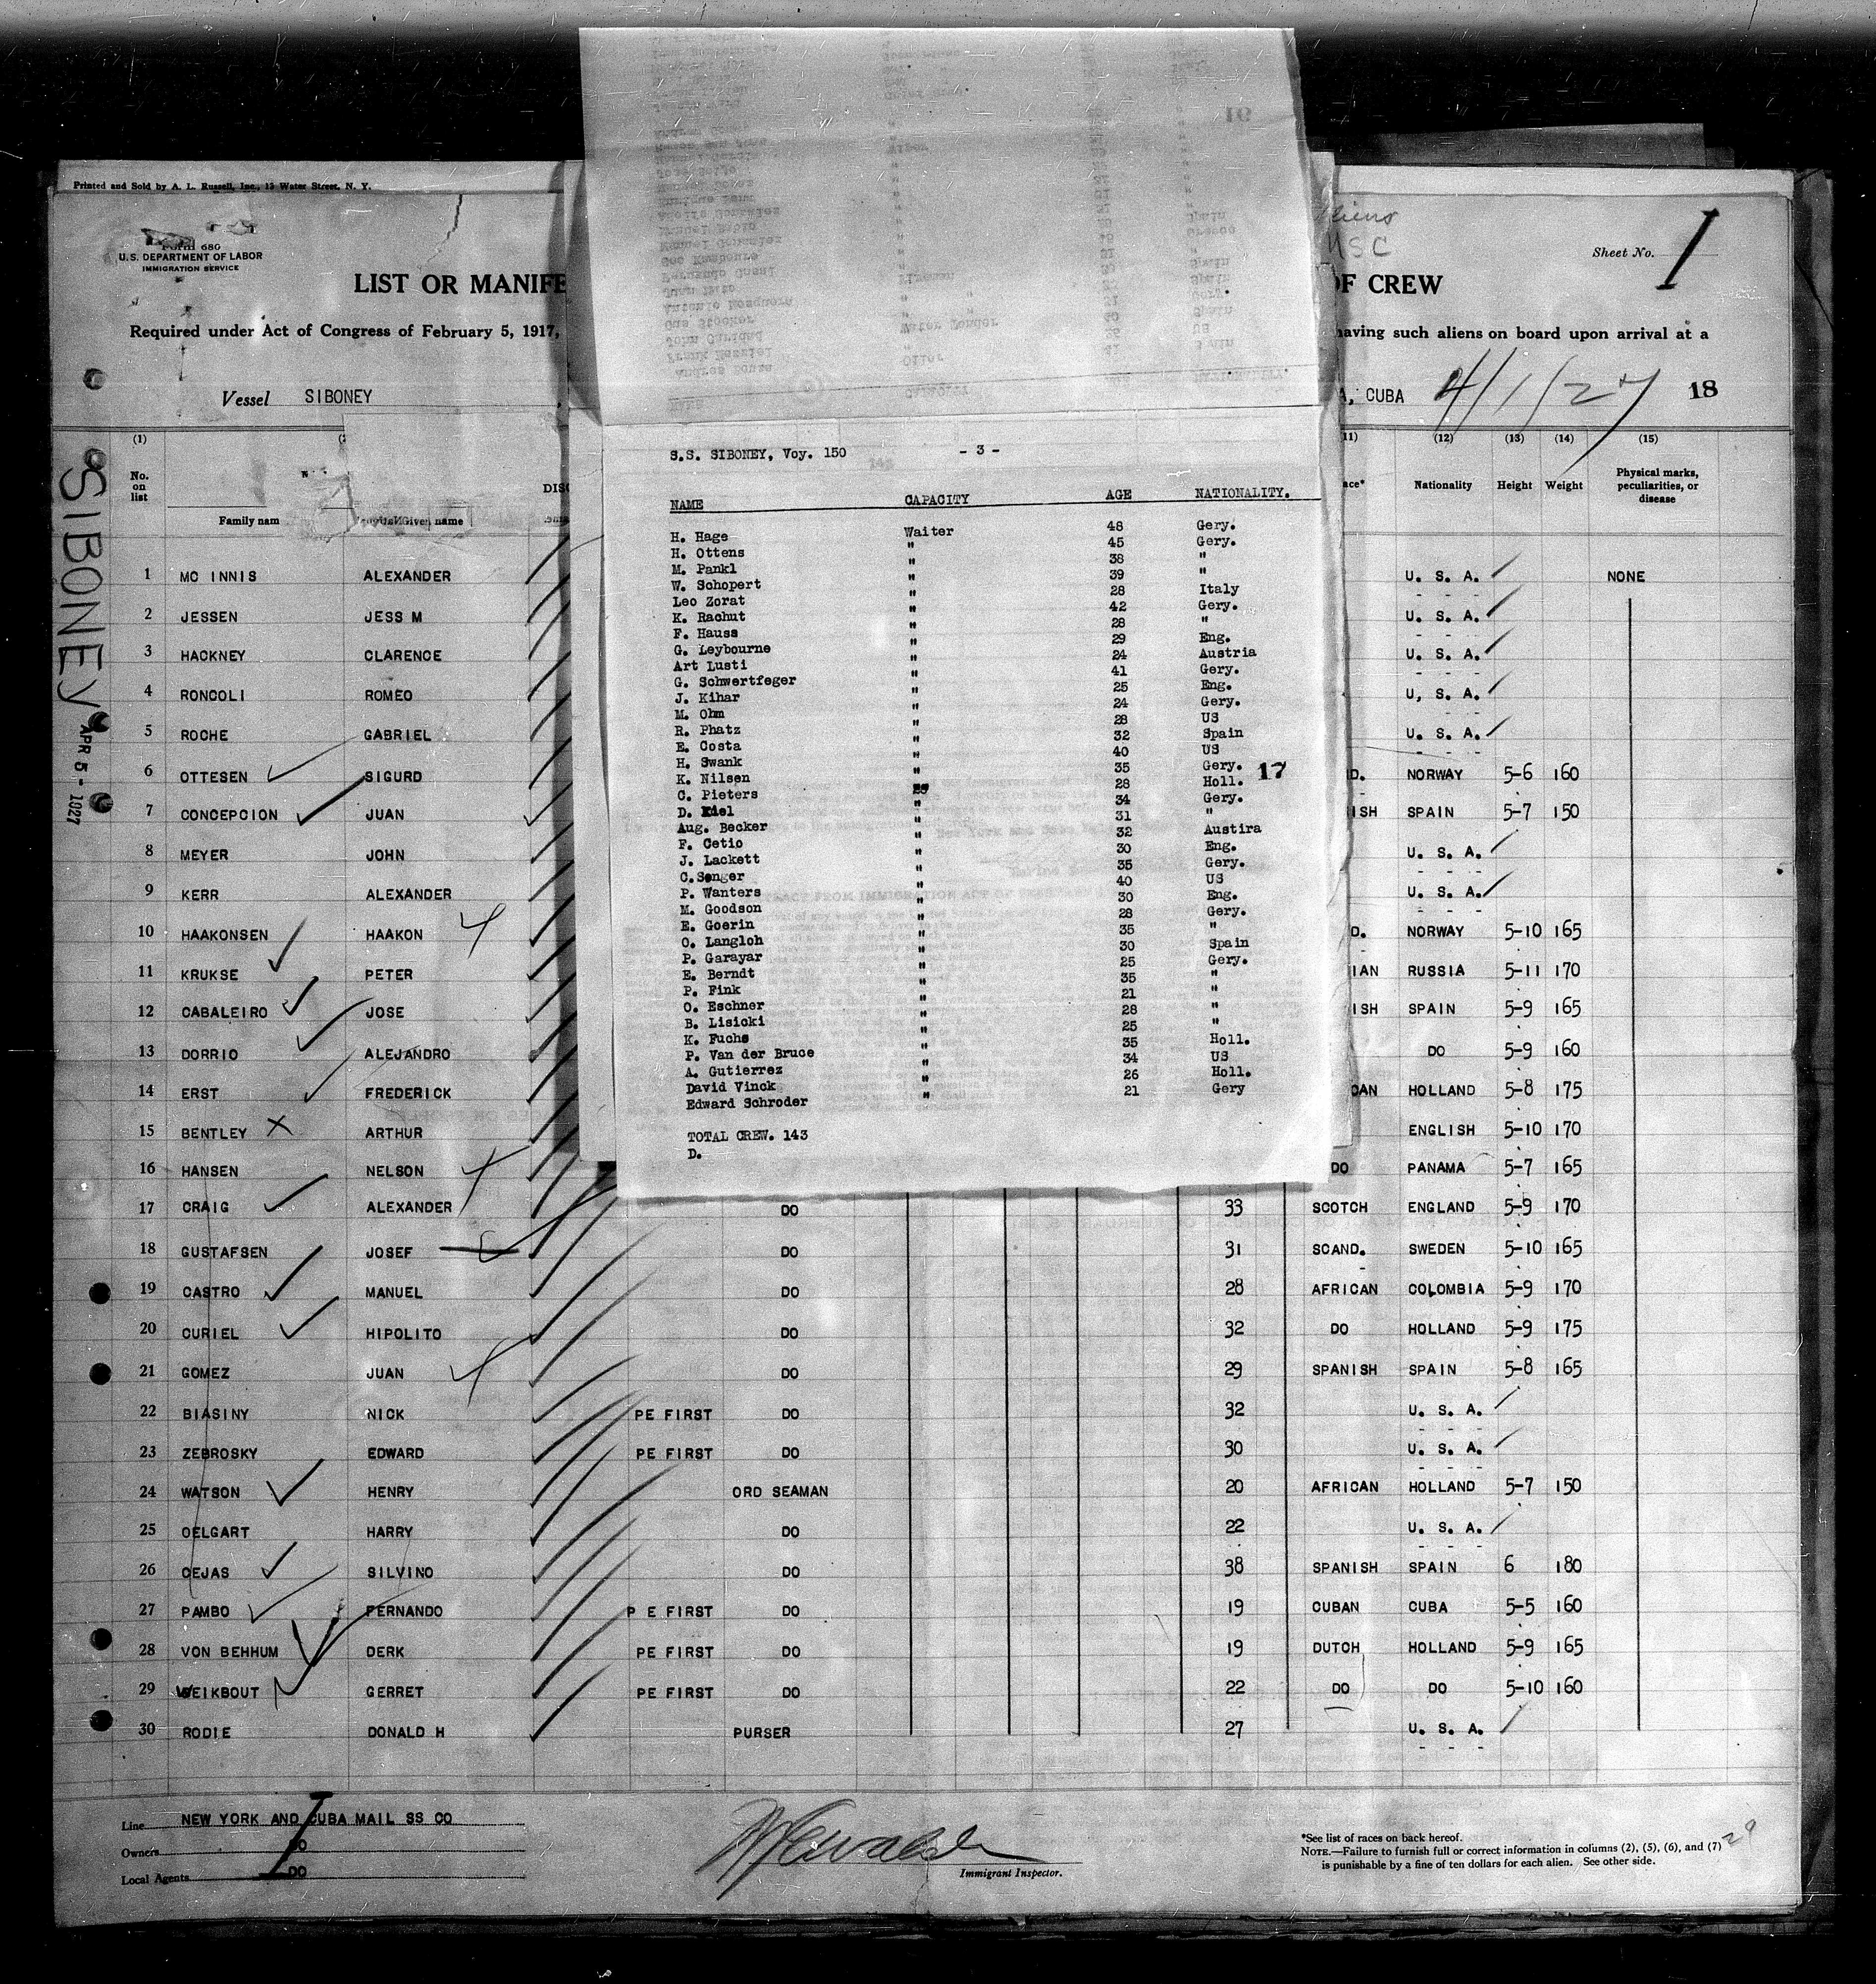 Printed and Sold by A. L. Russell, Inc., 13 Water Street, N. Y.
Form 680
U.S. DEPARTMENT OF LABOR
IMMIGRATION SERVICE
Sheet No. 1
LIST OR MANIFE OF CREW
Required under Act of Congress of February 5, 1917, having such aliens on board upon arrival at a
Vessel SIBONEY A, CUBA 4/1/27 18
SIBONEY
APR 5 - 1927
S.S. SIBONEY, Voy. 150 - 3 -
NAME CAPACITY AGE NATIONALITY.
H. Hage Waiter 48 Gery.
H. Ottens " 45 Gery.
M. Pankl " 38 "
W. Schopert " 39 "
Leo Zorat " 28 Italy
K. Rachut " 42 Gery.
F. Hauss " 28 "
G. Leybourne " 29 Eng.
Art Lusti " 24 Austria
G. Schwertfeger " 41 Gery.
J. Kihar " 25 Eng.
M. Ohm " 24 Gery.
R. Phatz " 28 US
E. Costa " 32 Spain
H. Swank " 40 US
K. Nilsen " 35 Gery. 17
C. Pieters " 28 Holl.
D. Kiel " 34 Gery.
Aug. Becker " 31 "
F. Cetio " 32 Austira
J. Lackett " 30 Eng.
C.Senger " 35 Gery.
P. Wanters " 40 US
M. Goodson " 30 Eng.
E. Goerin " 28 Gery.
O. Langloh " 35 "
P. Garayar " 30 Spain
E. Berndt " 25 Gery.
P. Fink " 35 "
O. Eschner " 21 "
B. Lisicki " 28 "
K. Fuchs " 25 "
P. Van der Bruce " 35 Holl.
A. Gutierrez " 34 US
David Vinck " 26 Holl.
Edward Schroder " 21 Gery
TOTAL CREW. 143
D.
(1) (11) (12) (13) (14) (15)
No. on list Family nam Given name Nationality Height Weight Physical marks, peculiarities, or disease
1 MC INNIS ALEXANDER U. S. A. NONE
2 JESSEN JESS M U. S. A.
3 HACKNEY CLARENCE U. S. A.
4 RONCOLI ROMEO U, S. A.
5 ROCHE GABRIEL U. S. A.
6 OTTESEN SIGURD D. NORWAY 5-6 160
7 CONCEPCION JUAN ISH SPAIN 5-7 150
8 MEYER JOHN U. S. A.
9 KERR ALEXANDER U. S. A.
10 HAAKONSEN HAAKON D. NORWAY 5-10 165
11 KRUKSE PETER IAN RUSSIA 5-11 170
12 CABALEIRO JOSE ISH SPAIN 5-9 165
13 DORRIO ALEJANDRO DO 5-9 160
14 ERST FREDERICK CAN HOLLAND 5-8 175
15 BENTLEY ARTHUR ENGLISH 5-10 170
16 HANSEN NELSON DO PANAMA 5-7 165
17 CRAIG ALEXANDER DO 33 SCOTCH ENGLAND 5-9 170
18 GUSTAFSEN JOSEF DO 31 SCAND. SWEDEN 5-10 165
19 CASTRO MANUEL DO 28 AFRICAN COLOMBIA 5-9 170
20 CURIEL HIPOLITO DO 32 DO HOLLAND 5-9 175
21 GOMEZ JUAN DO 29 SPANISH SPAIN 5-8 165
22 BIASINY NICK PE FIRST DO 32 U. S. A.
23 ZEBROSKY EDWARD PE FIRST DO 30 U. S. A.
24 WATSON HENRY ORD SEAMAN 20 AFRICAN HOLLAND 5-7 150
25 OELGART HARRY DO 22 U. S. A.
26 CEJAS SILVINO DO 38 SPANISH SPAIN 6 180
27 PAMBO FERNANDO P E FIRST DO 19 CUBAN CUBA 5-5 160
28 VON BEHHUM DERK PE FIRST DO 19 DUTCH HOLLAND 5-9 165
29 WEIKBOUT GERRET PE FIRST DO 22 DO DO 5-10 160
30 RODIE DONALD H PURSER 27 U. S. A.
Line NEW YORK AND CUBA MAIL SS CO
Owners DO
Local Agents DO
Immigrant Inspector.
*See list of races on back hereof.
NOTE.—Failure to furnish full or correct information in columns (2), (5), (6), and (7)
is punishable by a fine of ten dollars for each alien. See other side.